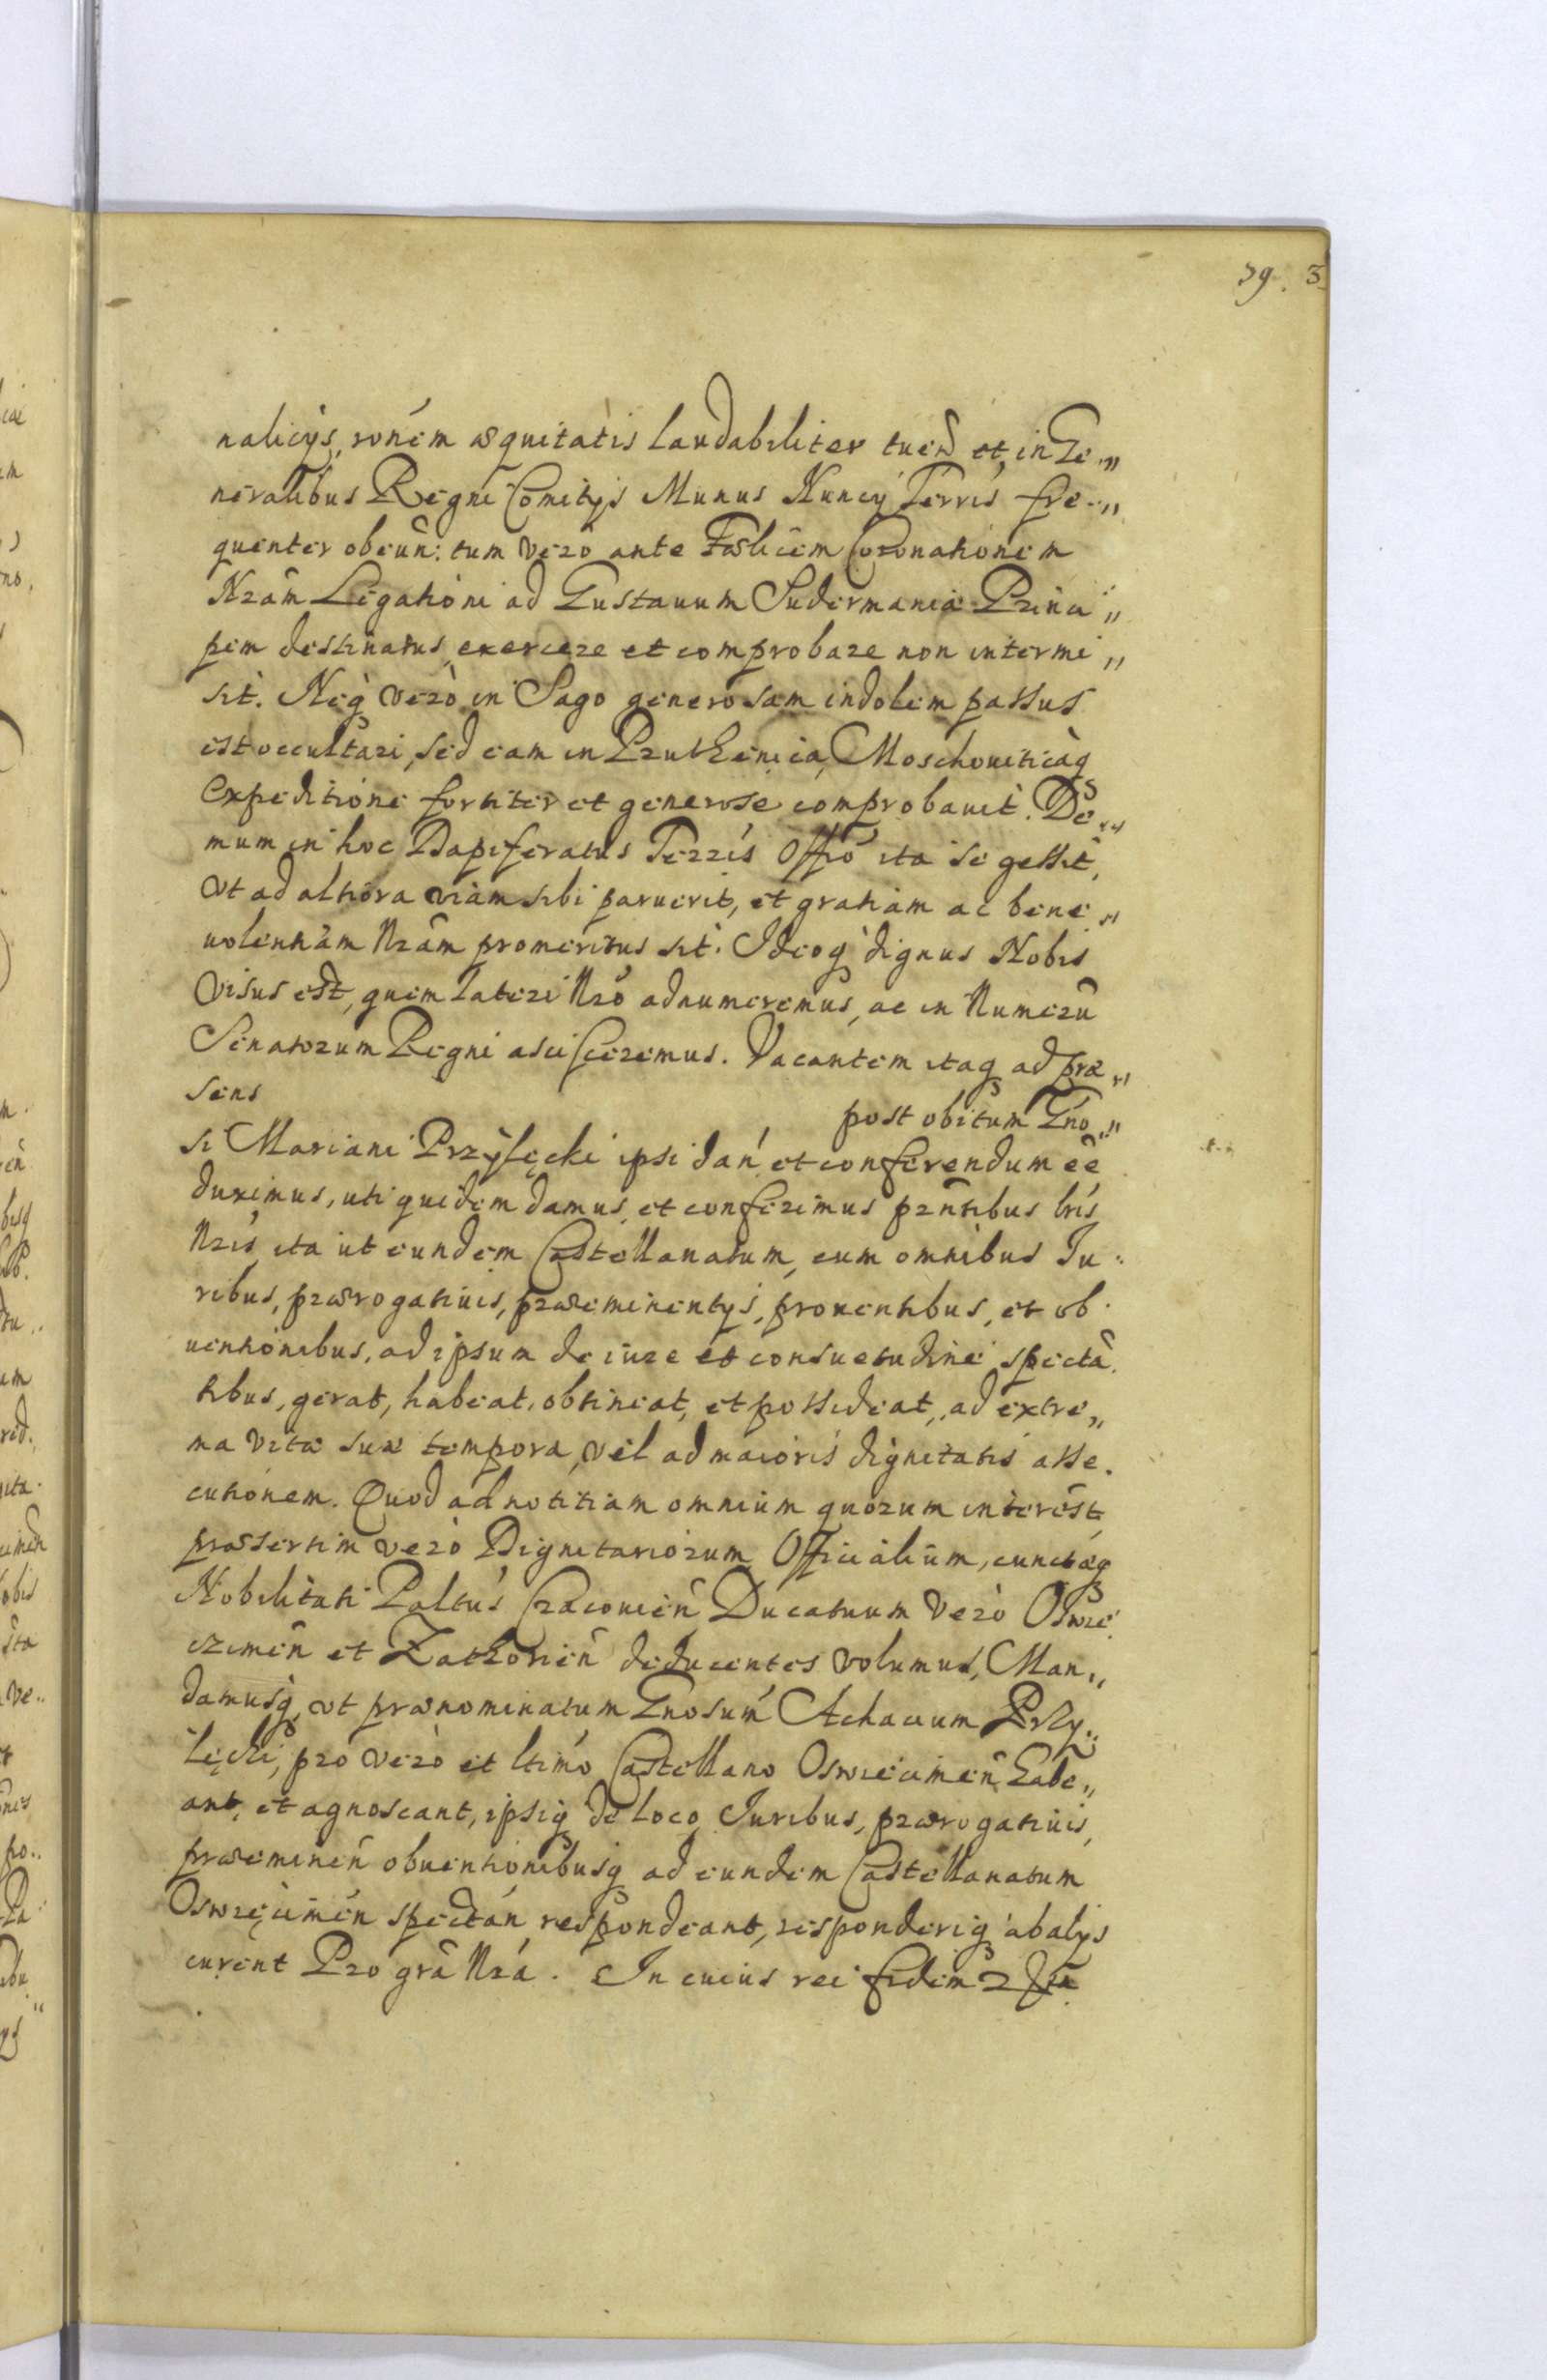 39. 3
nalicÿs, ronem æquitatis laudabiliter tuend et, in Ge„
neralibus Regni Comitÿs Munus Nuncÿ Terris fre„
quenter obeun: tum verò ante Fælicem Coronationem
Nrãm Legationi ad Gustauum Sudermaniæ Princi„
pem destinatus, exercere et comprobare non intermi„
sit. Neq verò in Sago generosam indolem passus
est occultari, sed eam in Pruthenica, Moschouiticàq
Expeditione fortiter et generose comprobauit. De„
mum in hoc Dapiferatus Terris Offo ita se gessit,
Vt ad altiora viam sibi paruerit, et gratiam ac bene„
uolentiam Nrãm promeritus sit. Ideoq dignus Nobis
Visus est, quem lateri Nro adnumeremus, ac in Numerũ
Senatorum Regni ascisceremus. Vacantem itaq ad præ„
sens
post obitum Gno„
si Mariani Przÿłęcki ipsi dań et conferendum eẽ
duximus, uti quidem damus, et conferimus pntibus lris
Nris, ita ut eundem Castellanatum, cum omnibus Iu„
ribus, prærogatiuis, præeminentÿs, prouentibus, et ob
uentionibus, ad ipsum de iure et consuetudine spectã
tibus, gerat, habeat, obtineat, et possideat, ad extre„
ma vitæ suæ tempora, vel ad maioris dignitatis asse
cutionem. Quod ad notitiam omnium quorum interest,
præsertim verò Dignitariorum Officialium, cunctæq
Nobilitati Paltus Cracouień Ducatuum verò Oswie
czimeń et Zathorień deducentes volumus, Man„
damusq, vt prænominatum Gnosum Achacium Przy„
łęcki, pro verò et ltimo Castellano Oswiecimeń habe„
ant, et agnoscant, ipsiq de loco, Iuribus, prærogatiuis,
præemineń obuentionibusq ad eundem Castellanatum
Oswięcimeń spectań, respondeant, responderiq ab alÿs
curent Pro grã Nrã. In cuius rei fidem